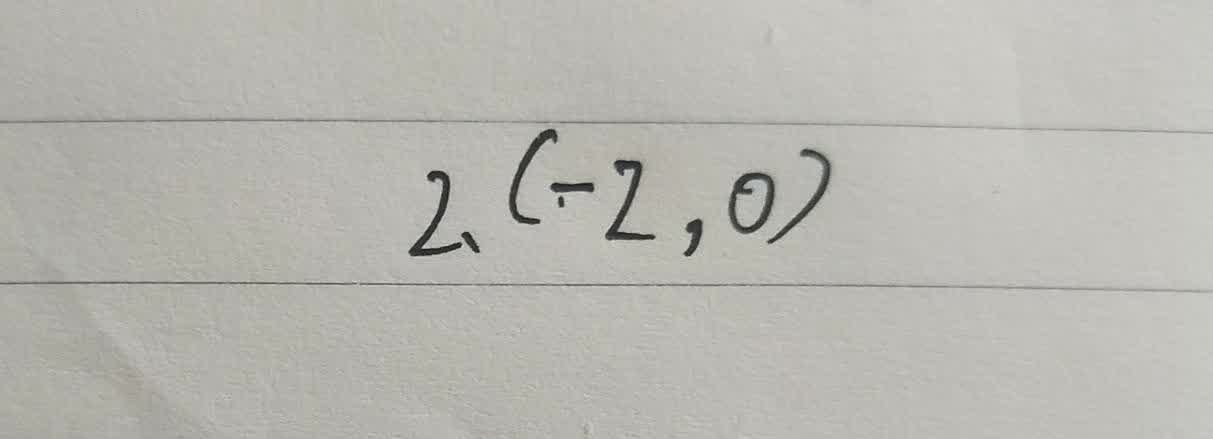 2、(-2,0)